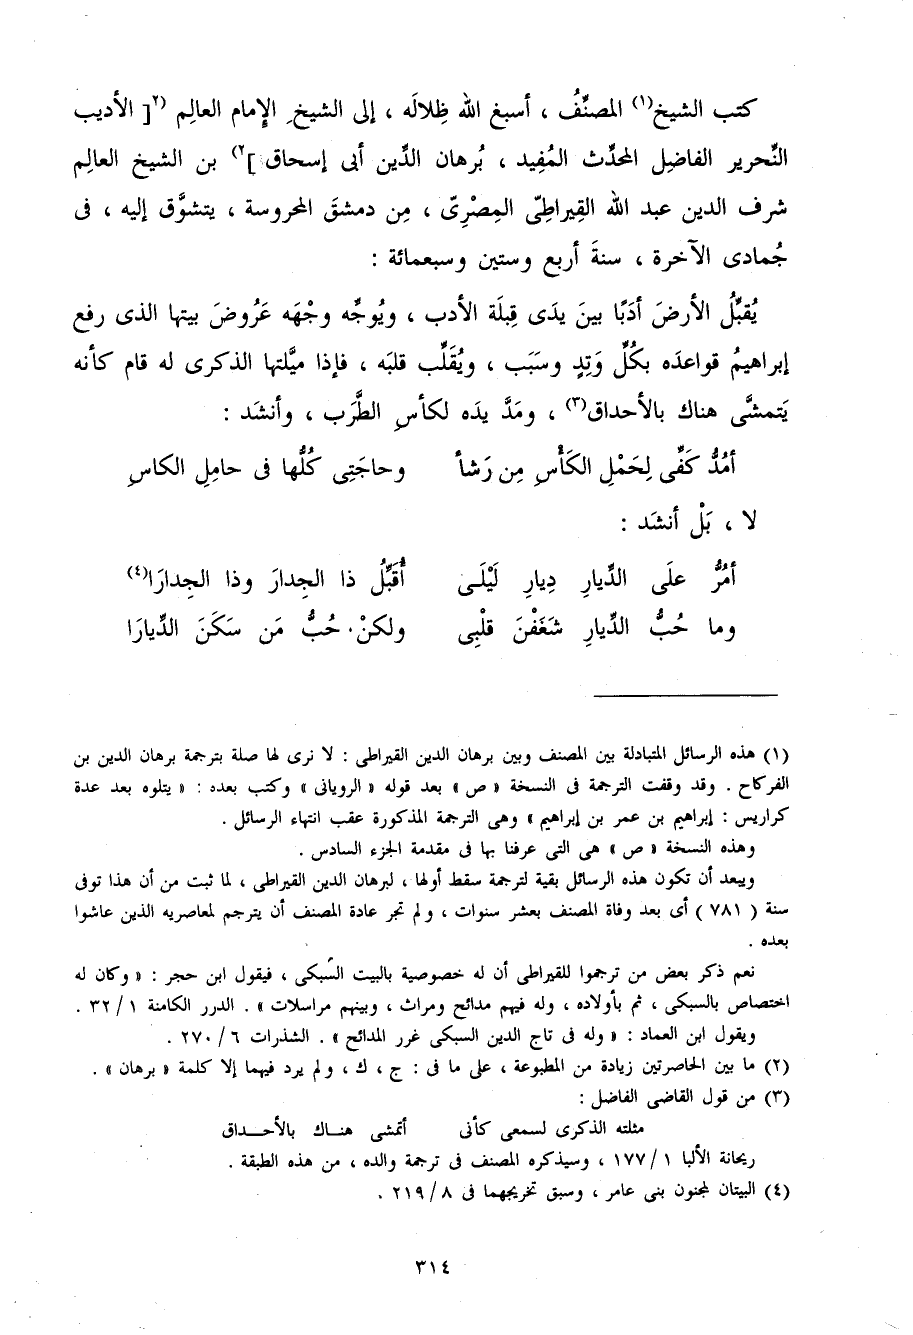 كتب الشيخ(١) المصنِّفُ ، أسبغ الله ظِلالَه ، إلى الشيخِ الإمام العالِم (٢[ الأديب
النِّحرير الفاضل المحدِّث المُفِيد ، بُرهان الدِّين أبى إسحاق ]٢) بن الشيخ العالِم
شرف الدين عبد الله القِيراطِىّ المِصْرِىّ ، مِن دمشقَ المحروسة ، يتشوَّق إليه ، فى
جُمادى الآخرة ، سنةَ أربع وستين وسبعمائة :
يُقبِّلُ الأرضَ أدَبًا بينَ يدَى قِبلَة الأدب ، ويُوجِّه وجْهَه عَرُوضَ بيتها الذى رفع
إبراهيمُ قواعدَه بكُلِّ وَتِدٍ وسَبَب ، ويُقَلِّب قلبَه ، فإذا ميَّلتها الذكرى له قام كأنه
يَتمشَّى هناك بالأحداق(٣) ، ومَدَّ يدَه لكأسِ الطَّرَب ، وأنشَد :
أمُدُّ كَفِّى لِحَمْلِ الكَأْسِ مِن رَشأ وحاجَتِى كُلُّها فى حامِلِ الكاسِ
لا ، بَلْ أنشَد :
أمُرُّ علَى الدِّيارِ دِيارِ لَيْلَى أُقَبِّلُ ذا الجِدارَ وذا الجِدارَا(٤)
وما حُبُّ الدِّيارِ شَغَفْنَ قلْبِى ولكنْ حُبُّ مَن سَكَنَ الدِّيارَا
(١) هذه الرسائل المتبادلة بين المصنف وبين برهان الدين القيراطى : لا نرى لها صلة بترجمة برهان الدين بن
الفركاح . وقد وقفت الترجمة فى النسخة « ص » بعد قوله « الرويانى » وكتب بعده : « يتلوه بعد عدة
كراريس : إبراهيم بن عمر بن إبراهيم » وهى الترجمة المذكورة عقب انتهاء الرسائل .
وهذه النسخة « ص » هى التى عرفنا بها فى مقدمة الجزء السادس .
ويبعد أن تكون هذه الرسائل بقية لترجمة سقط أولها ، لبرهان الدين القيراطى ، لما ثبت من أن هذا توفى
سنة ( ٧٨١ ) أى بعد وفاة المصنف بعشر سنوات ، ولم تجر عادة المصنف أن يترجم لمعاصريه الذين عاشوا
بعده .
نعم ذكر بعض من ترجموا للقيراطى أن له خصوصية بالبيت السّبكى ، فيقول ابن حجر : « وكان له
اختصاص بالسبكى ، ثم بأولاده ، وله فيهم مدائح ومراث ، وبينهم مراسلات » . الدرر الكامنة ١ / ٣٢ .
ويقول ابن العماد : « وله فى تاج الدين السبكى غرر المدائح » . الشذرات ٦ / ٢٧٠ .
(٢) ما بين الحاصرتين زيادة من المطبوعة ، على ما فى : ج ، ك ، ولم يرد فيهما إلا كلمة « برهان » .
(٣) من قول القاضى الفاضل :
مثلته الذكرى لسمعى كأنى أتمشى هناك بالأحداق
ريحانة الألبا ١ / ١٧٧ ، وسيذكره المصنف فى ترجمة والده ، من هذه الطبقة .
(٤) البيتان لمجنون بنى عامر ، وسبق تخريجهما فى ٨ / ٢١٩ .
٣١٤